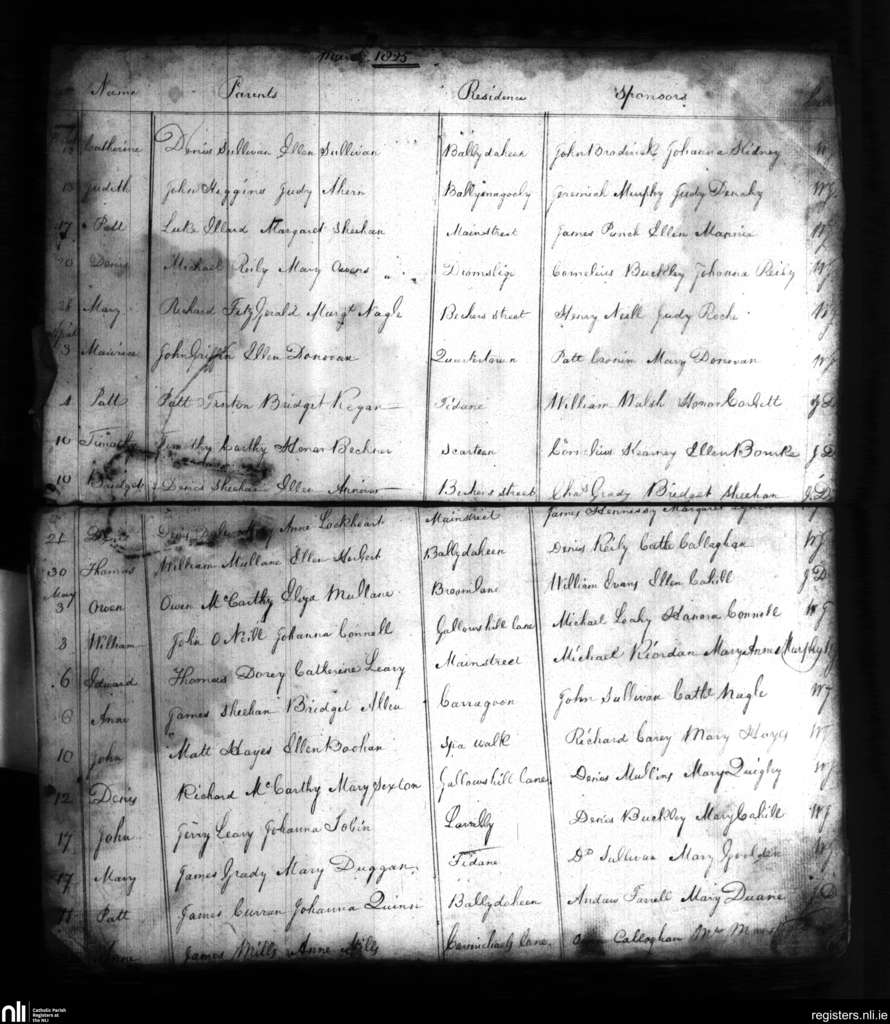 March 1825
Name Parents Residence Sponsors
12 Catherine Denis Sullivan Ellen Sullivan Ballydaheen John Brodrick Johanna Kidney WJ
13 Judith John Higgins Judy Ahern Ballymagooly Jeremiah Murphy Judy Denehy WJ
17 Patt Luke Illard Margaret Sheehan Mainstreet James Punch Ellen WJ
20 Denis Michael Reily Mary Owens Dromsligo Cornelius Buckley Johanna Reily WJ
28 Mary Richard FitzGerald Margt Nagle Bechers street Henry Neill Judy Roche WJ
April
3 Maurice John Griffin Ellen Donovan Quartertown Patt Cronin Mary Donovan WJ
4 Patt Patt Fenton Bridget Regan Fidane William Walsh Honor Corbett JD
10 Timothy Timothy Carthy Honor Bechner Scarteen Cornelius Kearney Ellen Bourke JD
10 Bridget Denis Sheehan Ellen Bechers street Chas Grady Bridget Sheehan JD
21 Denis Anne Lockheart Mainstreet James Hennessy Margaret
30 Thomas William Mullane Ellen Herbert Ballydaheen Denis Reily Cathe Callaghan WJ
May
3 Owen Owen McCarthy Eliza Mullane Broomlane William Evans Ellen Cahill JD
3 William John O Neill Johanna Connell Gallowshill lane Michael Leahy Hanora Connell WJ
6 Edward Thomas Dorey Catherine Leary Mainstreet Michael Riordan Mary Anne Murphy WJ
8 Anne James Sheehan Bridget Allen Carragoon John Sullivan Cathe Nagle WJ
10 John Matt Hayes Ellen Boohan Spa walk Richard Carey Mary Hayes WJ
12 Denis Richard McCarthy Mary Sexton Gallowshill lane Denis Mullins Mary Quigley WJ
17 John Jerry Leary Johanna Tobin Lavally Denis Buckley Mary Cahill WJ
17 Mary James Grady Mary Duggan Fidane Ds Sullivan Mary WJ
Patt James Curran Johanna Quinn Ballydaheen Andrew Farrell Mary Duane JD
Anne James Mills Anne Mills Carmichaels lane Owen Callaghan
nli Catholic Parish
Registers at
the NLI
registers.nli.ie